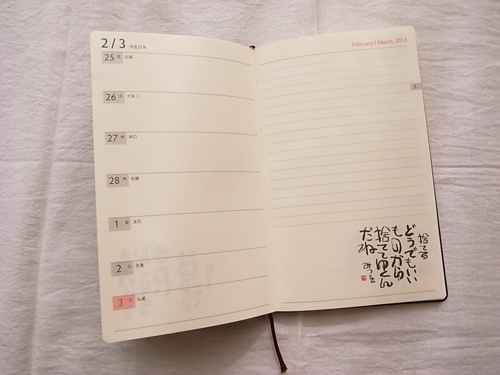 2/3 平成25年
25 月 仏滅
26 火 大安
27 水 赤口
28 木 先勝
1 金 友引
2 土 先負
3 日 仏滅
February / March, 2013
捨てる
どうでもいい
ものから
捨ててゆくん
だね